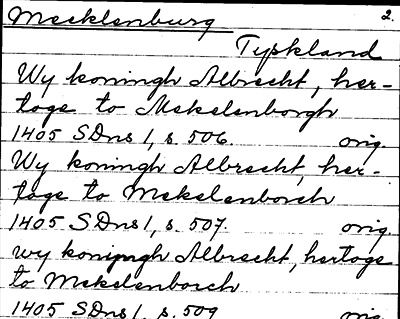 Mecklenburg 2.
Tyskland
Wy koningh Albrecht, her-
toge to Mekelenborgh
1405 SDns 1, s. 506. orig.
Wy koningh Albrecht, her-
toge to Mekelenborch
1405 SDns 1, s. 507. orig.
wy konyngh Albrecht, hertoge
to Mekelenborch
1405 SDns 1, s. 509 orig.